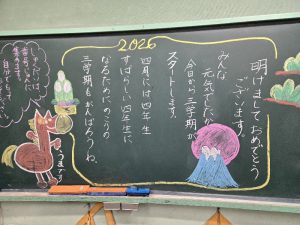 2026
明けましておめでとう
ございます！
みんな
元気でしたか
今日から三学期が
スタートします。
四月には四年生
すばらしい四年生に
なるために のこりの
三学期も がんばろうね。
しゅくだいは
集めます。
自分で
うまです